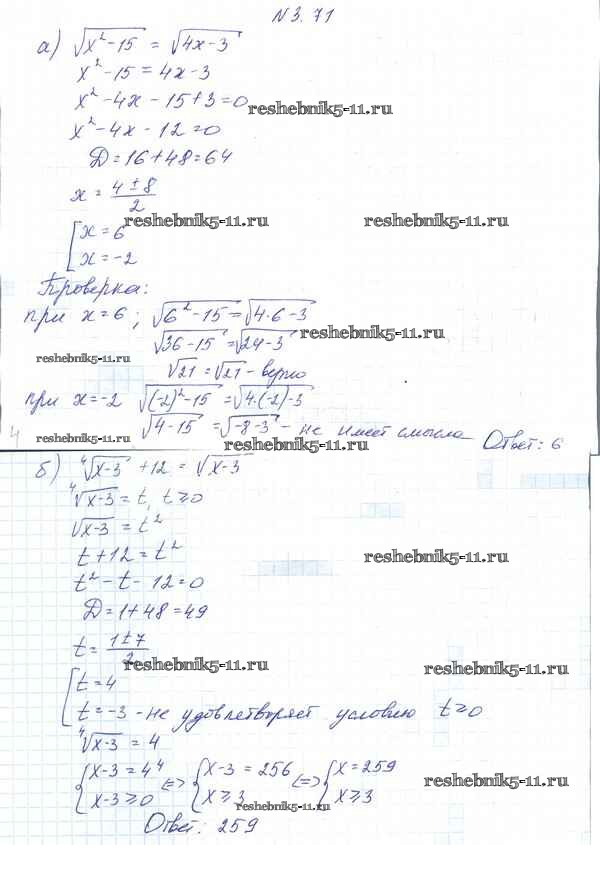 N 3.71
а) √(x²-15) = √(4x-3)
x²-15 = 4x-3
x²-4x-15+3=0
reshebnik5-11.ru
x²-4x-12=0
D=16+48=64
x = (4±8)/2
reshebnik5-11.ru reshebnik5-11.ru
[x=6
x=-2
Проверка:
при x=6; √(6²-15) = √(4·6-3)
reshebnik5-11.ru
√(36-15) = √(24-3)
reshebnik5-11.ru
√21 = √21 - верно
при x=-2 √((-2)²-15) = √(4·(-2)-3)
√(4-15) = √(-8-3) - не имеет смысла Ответ: 6
reshebnik5-11.ru reshebnik5-11.ru
б) ⁴√(x-3) +12 = √(x-3)
⁴√(x-3) = t, t≥0
√(x-3) = t²
t+12=t²
reshebnik5-11.ru
t²-t-12=0
D=1+48=49
t = (1±7)/2
reshebnik5-11.ru reshebnik5-11.ru
[t=4
t=-3 - не удовлетворяет условию t≥0
⁴√(x-3) = 4
{x-3=4⁴ <=> {x-3=256 <=> {x=259
x-3≥0 x≥3 x≥3
reshebnik5-11.ru reshebnik5-11.ru
Ответ: 259